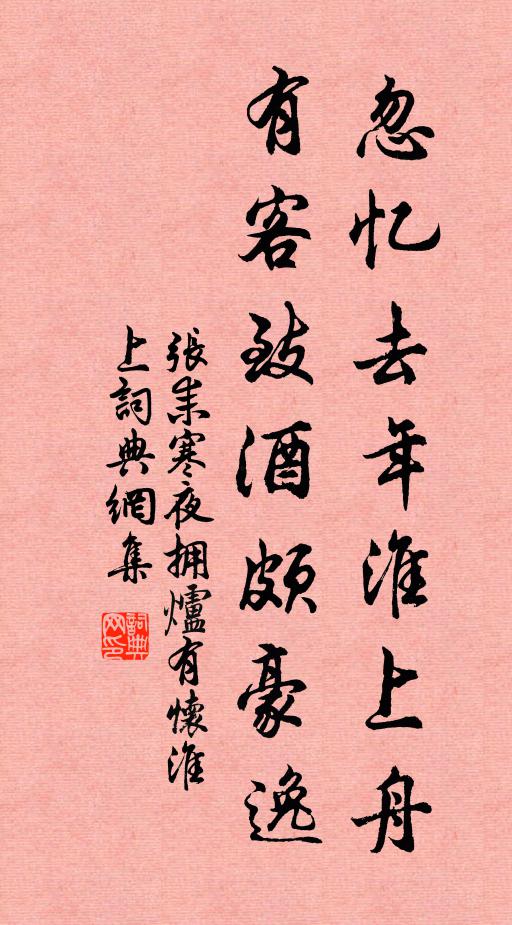 忽忆去年淮上舟
有客致酒颇豪逸
張耒寒夜拥爐有懷淮
上詞典網集
詞典网印